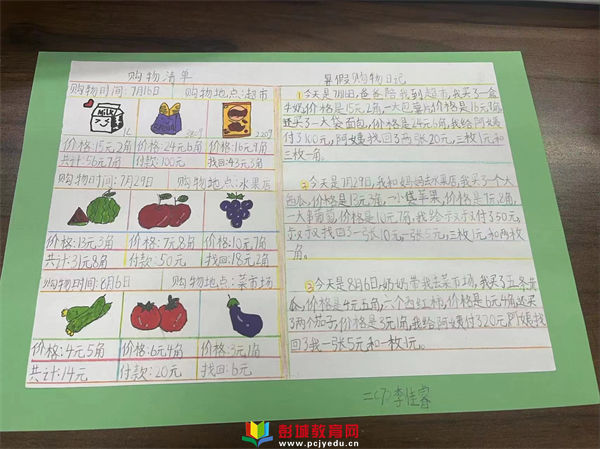 购物清单
购物时间:7月16日 购物地点:超市
MILK
1L
220g
价格:15元2角 价格:24元6角 价格:16元9角
共计:56元7角 付款:100元 找回:43元3角
购物时间:7月29日 购物地点:水果店
价格:13元3角 价格:7元8角 价格:10元7角
共计:31元8角 付款:50元 找回:18元2角
购物时间:8月6日 购物地点:菜市场
价格:4元5角 价格:6元4角 价格:3元1角
共计:14元 付款:20元 找回:6元
暑假购物日记
①今天是7月16日,爸爸陪我到超市,我买了一盒
牛奶,价格是15元2角,一大包薯片价格是16元9角
还买了一大袋面包,价格是24元6角,我给阿姨
付了100元,阿姨找回了两张20元,三枚1元和
三枚一角。
②今天是7月29日,我和妈妈去水果店,我买了个大
西瓜,价格是13元3角,一小袋苹果,价格是7元8角,
一大串葡萄,价格是10元7角,我给叔叔付了50元,
叔叔找回了一张10元,一张5元,三枚1元和两枚
一角。
③今天是8月6日,奶奶带我去菜市场,我买了五条黄
瓜,价格是4元五角,六个西红柿,价格是6元4角,还买
了两个茄子,价格是3元1角,我给阿姨付了20元,阿姨找
回了我一张5元和一枚1元。
二(7)李佳睿
彭城教育网
www.pcjyedu.cn